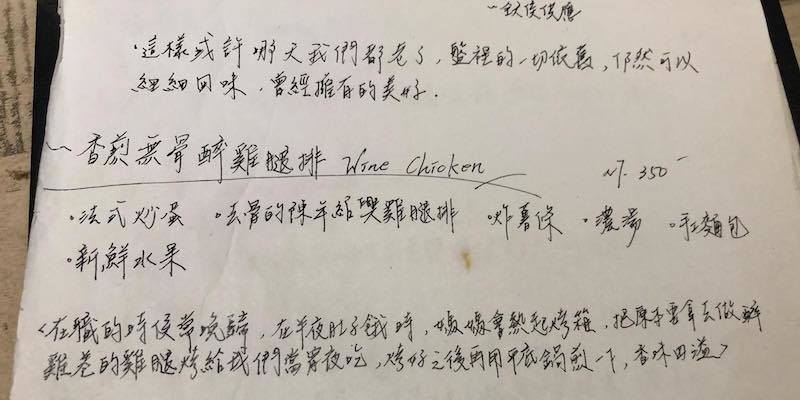 ~ 全天侯供應
·這樣或許哪天我們都老了，盤裡的一切依舊，仍然可以
細細回味，曾經擁有的美好．
~ 香煎無骨醉雞腿排 Wine Chicken NT. 350-
·法式炒蛋 ·去骨的陳年紹興雞腿排 ·炸薯條 ·濃湯 ·手工麵包
·新鮮水果
<在職的時侯常晚歸，在半夜肚子餓時，嬤嬤會熱起烤箱，把原本要拿去做醉
雞卷的雞腿烤給我們當宵夜吃，烤好之後再用平底鍋煎一下，香味四溢>